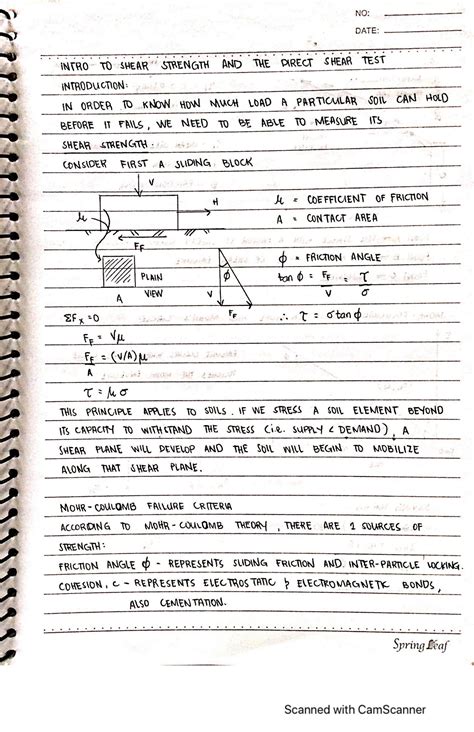 NO:
DATE:
INTRO TO SHEAR STRENGTH AND THE DIRECT SHEAR TEST
INTRODUCTION:
IN ORDER TO KNOW HOW MUCH LOAD A PARTICULAR SOIL CAN HOLD
BEFORE IT FAILS, WE NEED TO BE ABLE TO MEASURE ITS
SHEAR STRENGTH.
CONSIDER FIRST A SLIDING BLOCK
V
H
μ
F_F
μ = COEFFICIENT OF FRICTION
A = CONTACT AREA
PLAIN
VIEW
A
φ
V
F_F
φ = FRICTION ANGLE
tan φ = F_F/V = τ/σ
∴ τ = σ tan φ
ΣF_x = 0
F_F = Vμ
F_F/A = (V/A) μ
τ = μ σ
THIS PRINCIPLE APPLIES TO SOILS. IF WE STRESS A SOIL ELEMENT BEYOND
ITS CAPACITY TO WITHSTAND THE STRESS (i.e. SUPPLY < DEMAND), A
SHEAR PLANE WILL DEVELOP AND THE SOIL WILL BEGIN TO MOBILIZE
ALONG THAT SHEAR PLANE.
MOHR-COULOMB FAILURE CRITERIA
ACCORDING TO MOHR-COULOMB THEORY, THERE ARE 2 SOURCES OF
STRENGTH:
FRICTION ANGLE φ - REPRESENTS SLIDING FRICTION AND INTER-PARTICLE LOCKING.
COHESION, C - REPRESENTS ELECTROSTATIC & ELECTROMAGNETIC BONDS,
ALSO CEMENTATION.
Spring Leaf
Scanned with CamScanner